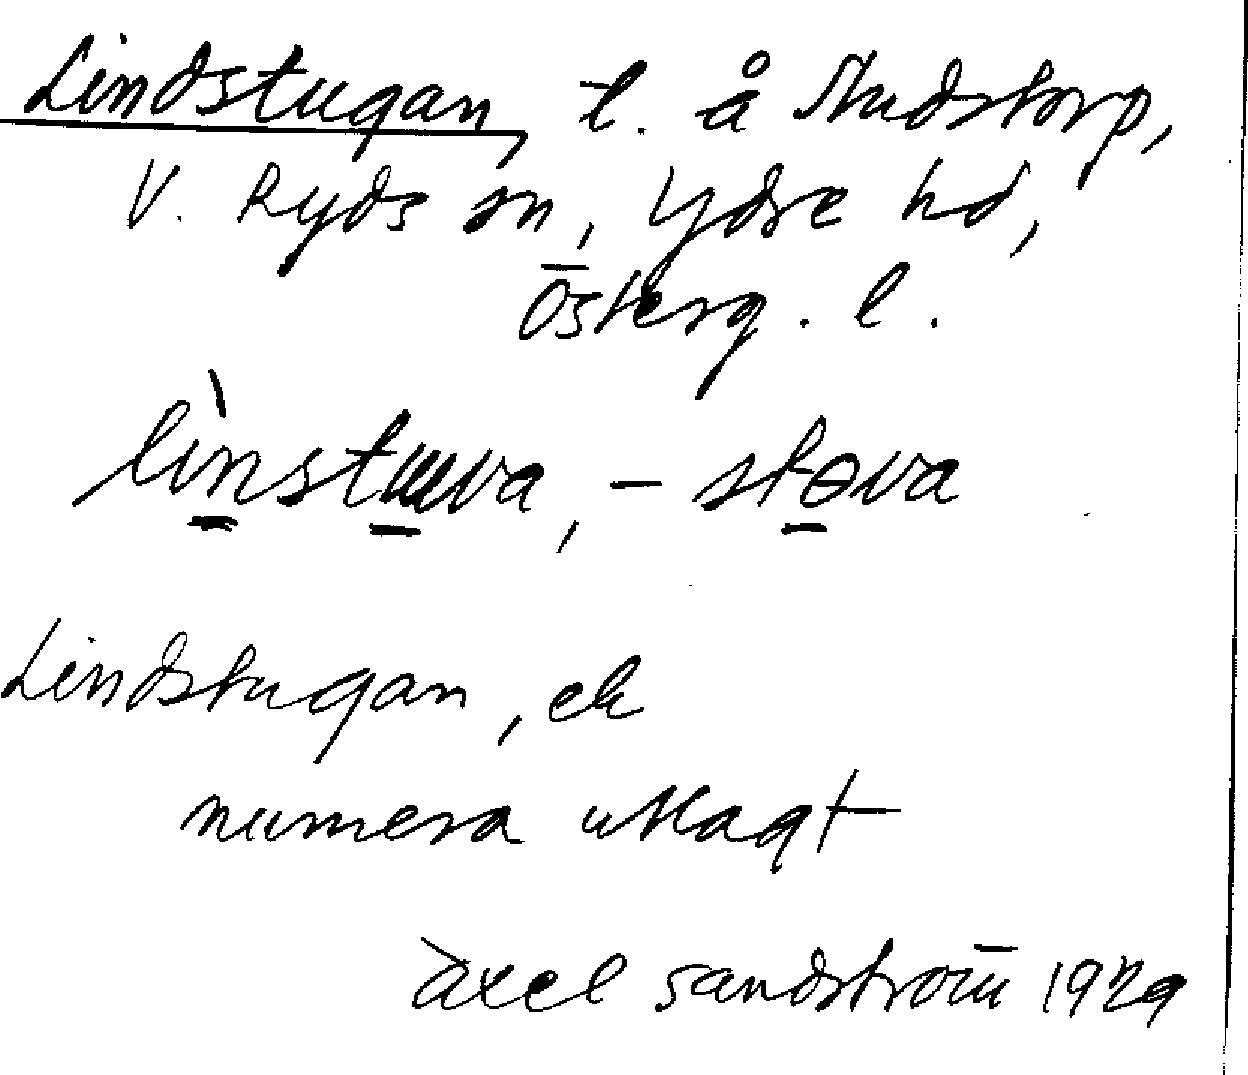 Lindstugan, t. å Rudstorp,
V. Ryds sn, Ydre hd,
Österg. l.
lìnstuva, -stova
Lindstugan, ek
numera utlagt
Axel Sandström 1929